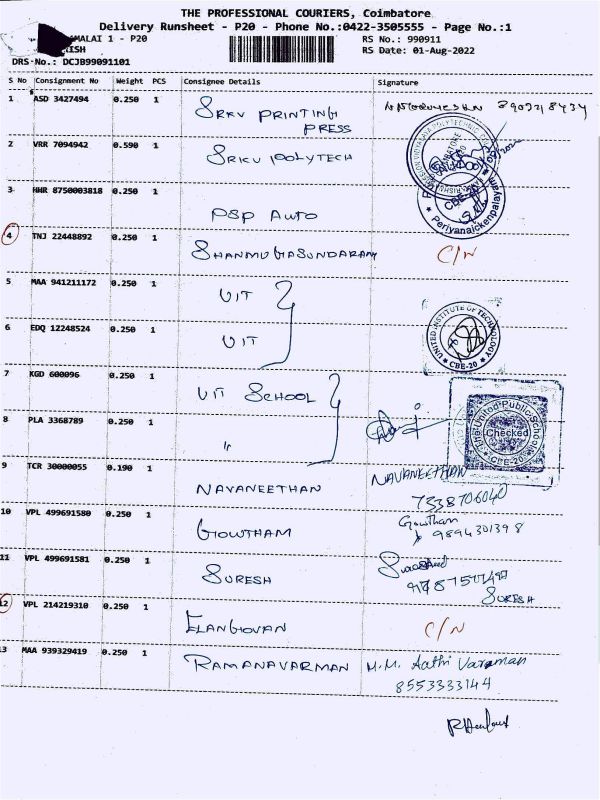 THE PROFESSIONAL COURIERS, Coimbatore
Delivery Runsheet - P20 - Phone No.:0422-3505555 - Page No.:1
MALAI 1 - P20
RS No.: 990911
RS Date: 01-Aug-2022
DRS-No.: DCJB99091101
S No Consignment No Weight PCS Consignee Details Signature
1 ASD 3427494 0.250 1 SRKV PRINTING PRESS
2 VRR 7094942 0.590 1 SRKV POLYTECH
3 HHR 8750003818 0.250 1 PSP AUTO
Periyanaickenpalayam
4 TNJ 22448892 0.250 1 SHANMUGASUNDARAM C/N
5 MAA 941211172 0.250 1 UIT
UNITED INSTITUTE OF TECHNOLOGY
★ CBE-20 ★
6 EDQ 12248524 0.250 1 UIT
7 KGD 600096 0.250 1 UIT SCHOOL
The United Public School
Checked
CBE-20
8 PLA 3368789 0.250 1 "
9 TCR 30000055 0.190 1 NAVANEETHAN NAVANEETHAN
7538706040
10 VPL 499691580 0.250 1 GOWTHAM Gowthan
9894301398
11 VPL 499691581 0.250 1 SURESH
SURESH
12 VPL 214219310 0.250 1 ELANGOVAN C/N
13 MAA 939329419 0.250 1 RAMANAVARMAN M.M. Aathi Varaman
8553333144